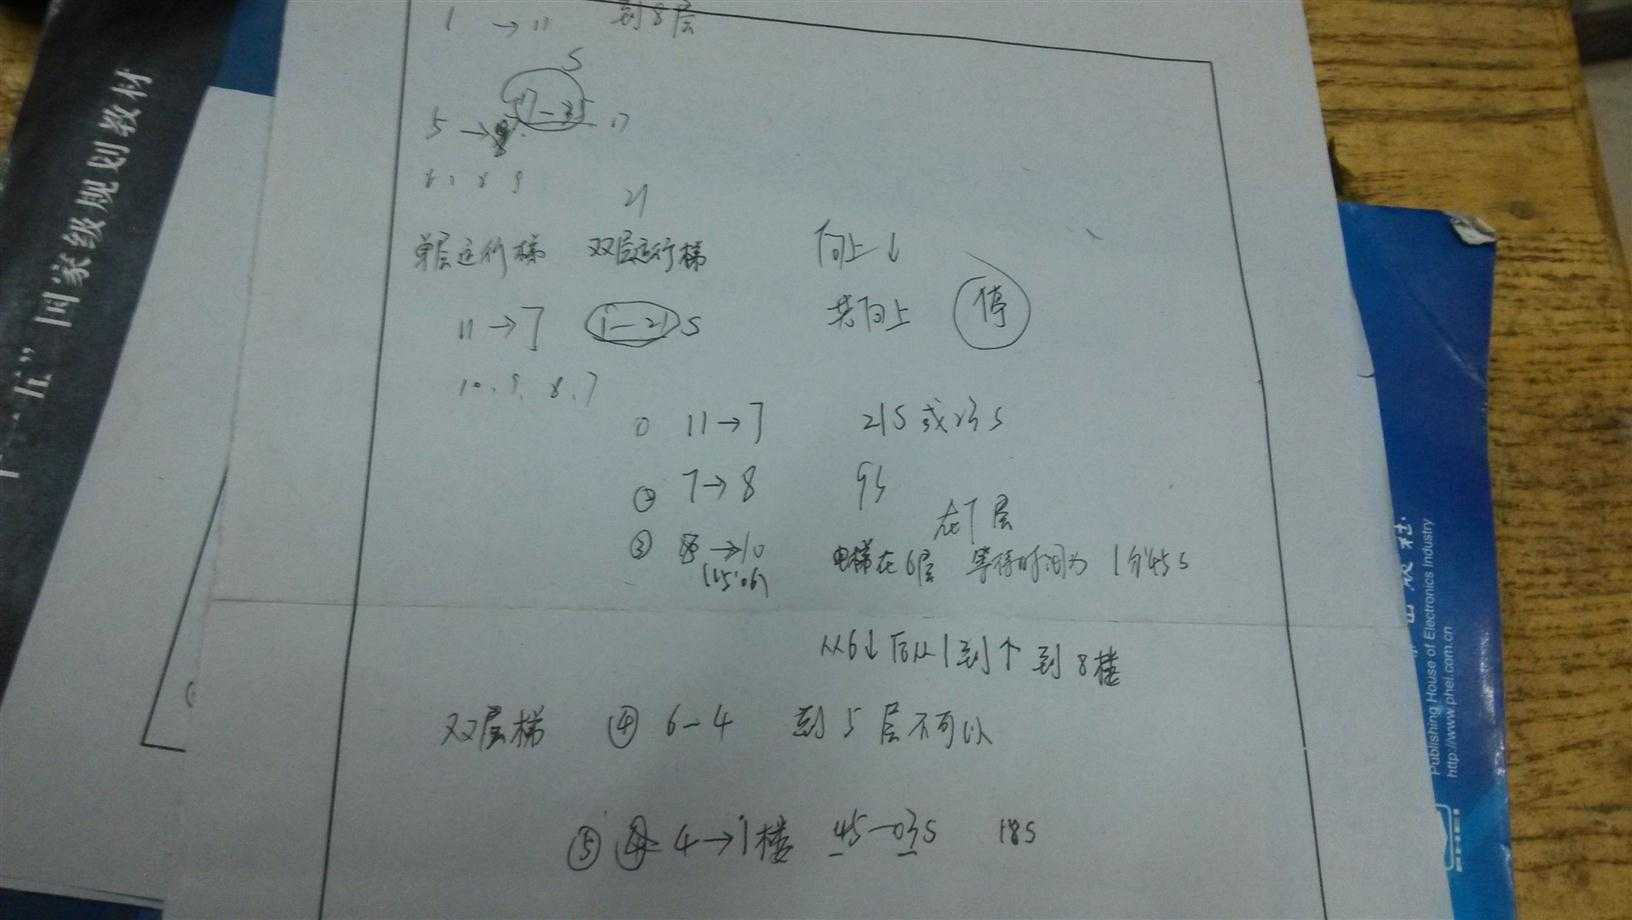 1 → 11 到8层
S
17-35
5 → 17
21
单层运行梯 双层运行梯 向上↓
11 → 7 1-21 S 共向上 停
10、9、8、7
① 11→7 21S或23S
② 7→8 9S
在1层
③ →10 电梯在6层 等待时间为 1分45s
(15:06)
从6↓后从1到↑到8楼
双层梯 ④ 6-4 到5层不可以
⑤ 4→1楼 45-03S 18S
“十一五”国家级规划教材
出版社
Publishing House of Electronics Industry
http://www.phei.com.cn
PHEI